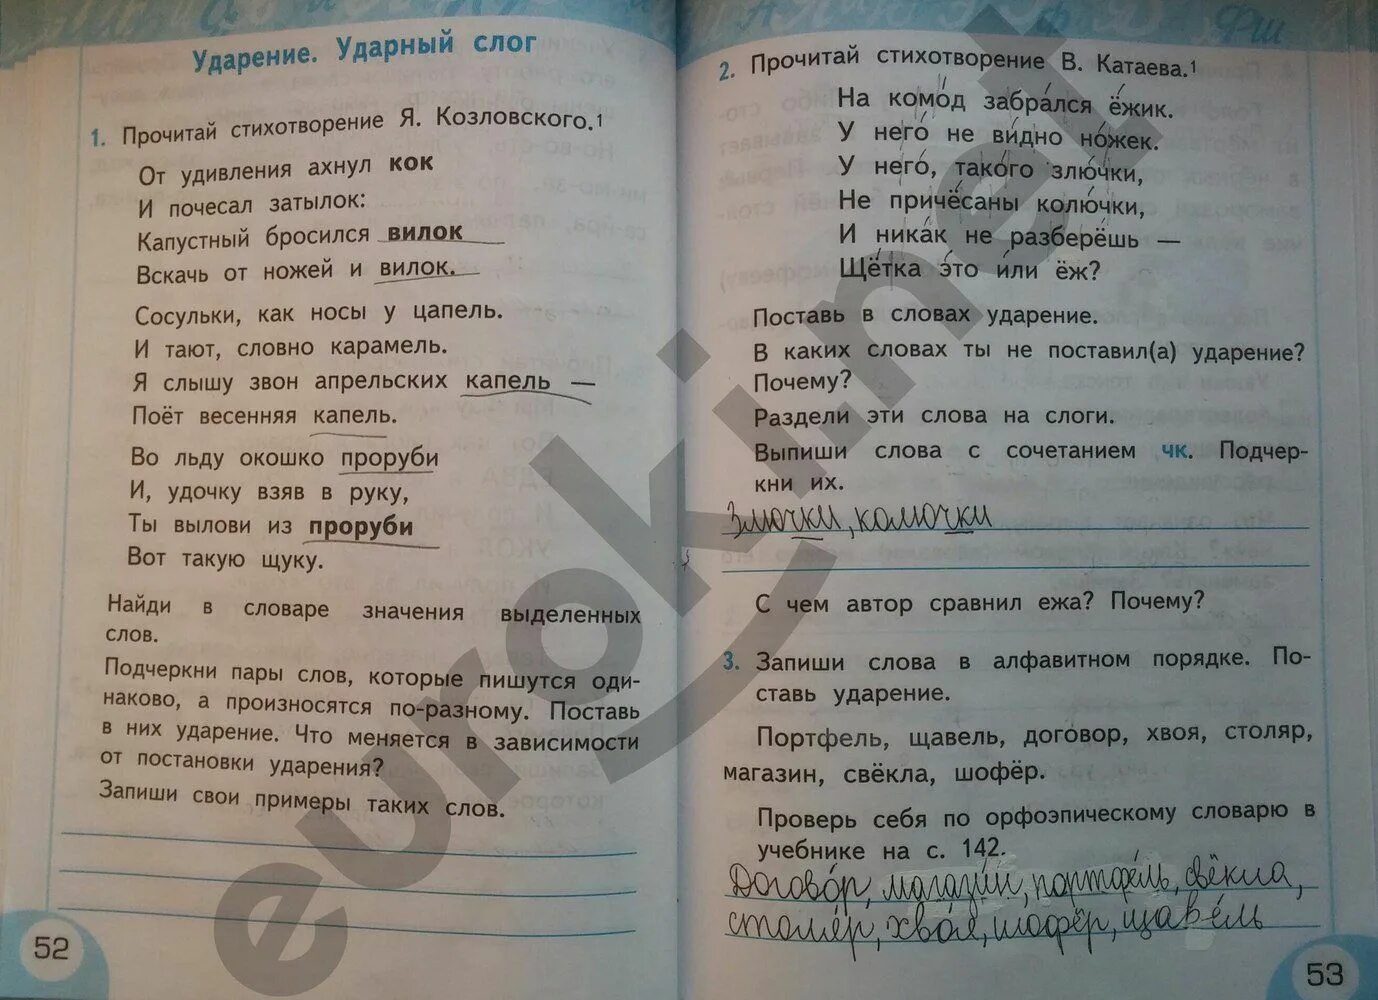 Ударение. Ударный слог
1. Прочитай стихотворение Я. Козловского.1
От удивления ахнул кок
И почесал затылок:
Капустный бросился вилок
Вскачь от ножей и вилок.
Сосульки, как носы у цапель.
И тают, словно карамель.
Я слышу звон апрельских капель —
Поёт весенняя капель.
Во льду окошко проруби
И, удочку взяв в руку,
Ты вылови из проруби
Вот такую щуку.
Найди в словаре значения выделенных
слов.
Подчеркни пары слов, которые пишутся оди-
наково, а произносятся по-разному. Поставь
в них ударение. Что меняется в зависимости
от постановки ударения?
Запиши свои примеры таких слов.
52
2. Прочитай стихотворение В. Катаева.1
На комо́д забра́лся ёжик.
У него́ не ви́дно но́жек.
У него́, тако́го злю́чки,
Не причёсаны колю́чки,
И ника́к не разберёшь —
Щётка э́то и́ли ёж?
Поставь в словах ударение.
В каких словах ты не поставил(а) ударение?
Почему?
Раздели эти слова на слоги.
Выпиши слова с сочетанием чк. Подчер-
кни их.
Злючки, колючки
С чем автор сравнил ежа? Почему?
3. Запиши слова в алфавитном порядке. По-
ставь ударение.
Портфель, щавель, договор, хвоя, столяр,
магазин, свёкла, шофёр.
Проверь себя по орфоэпическому словарю в
учебнике на с. 142.
Догово́р, магази́н, портфе́ль, свёкла,
столя́р, хво́я, шофёр, щаве́ль
53
eurokin.net